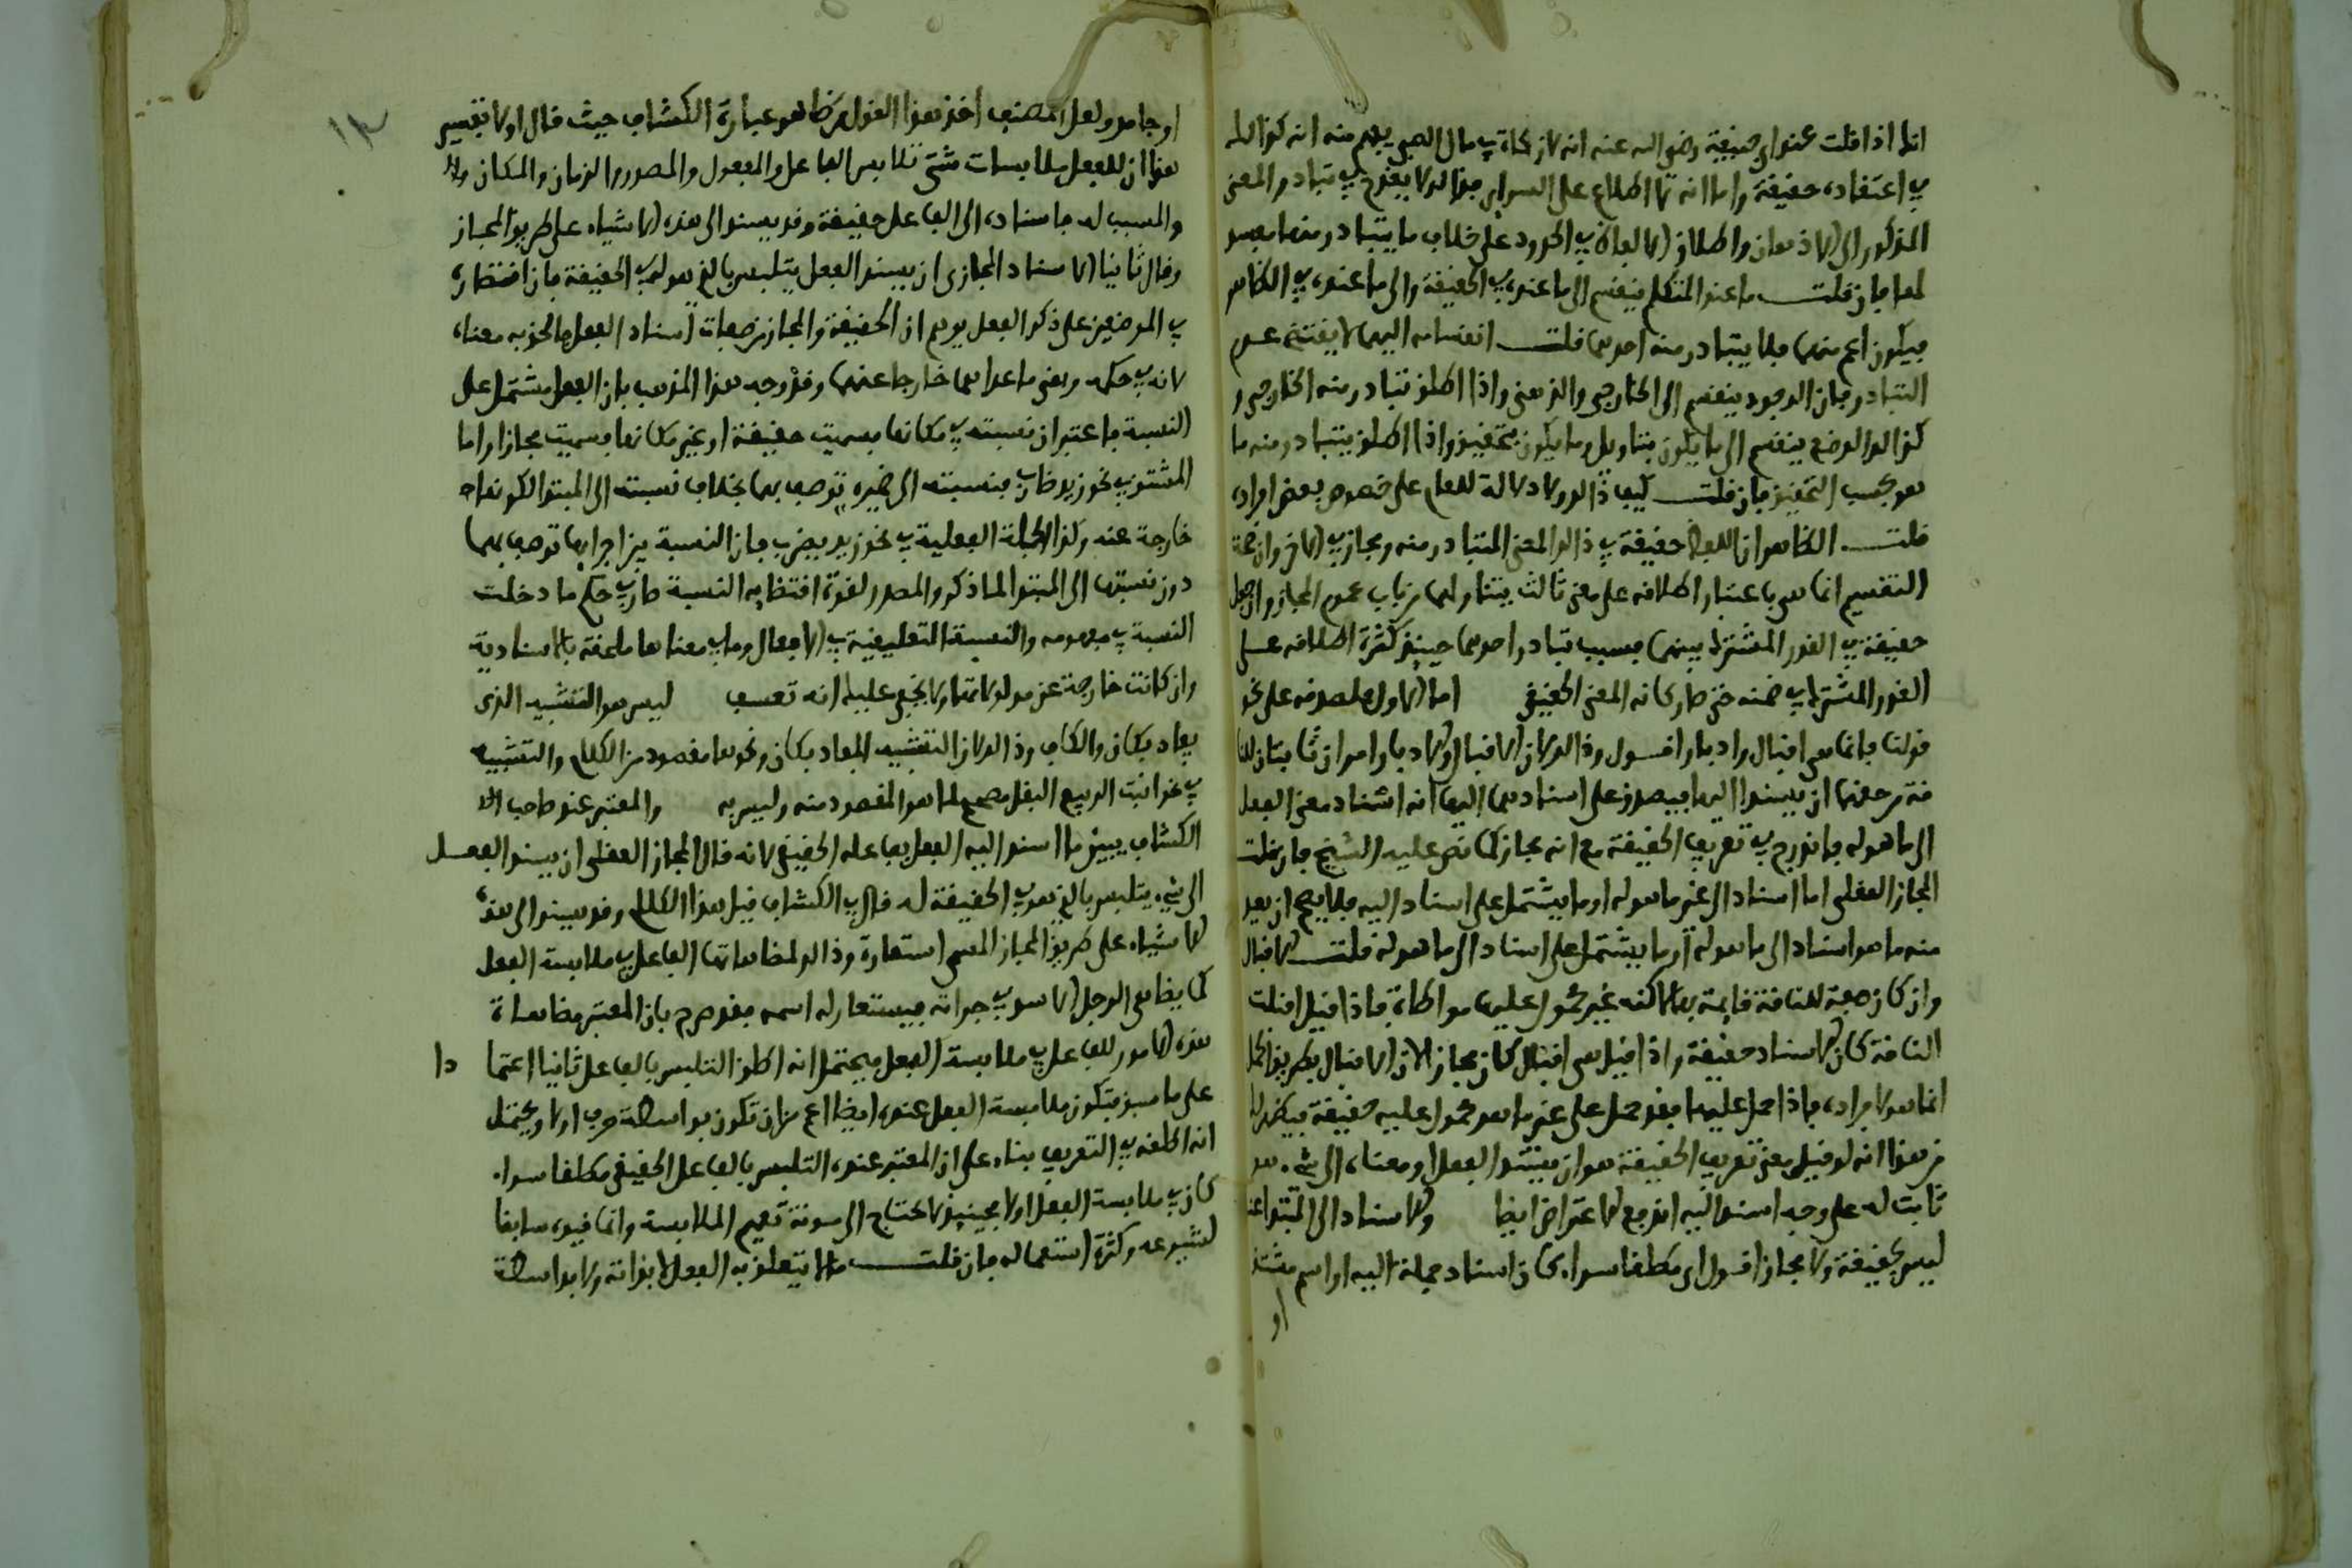 انك اذا قلت عند ابي حنيفة رضي الله عنه انه لا زكاة في مال الصبي يفهم منه انه كذلك
في اعتقاده حقيقة واما انه لا اطلاع على السرائر فذلك لا يقدح في تبادر المعنى
المذكور الى الاذهان واطلاق الالفاظ في الحدود على خلاف ما يتبادر منها مفسد
لها فان قلت ما عند المتكلم ينقسم الى ما عنده في الحقيقة والى ما عنده في الظاهر
فيكون اعم منهما فلا يتبادر منه احدهما قلت انقسامه اليهما لا يقتضي عدم
التبادر فان الوجود ينقسم الى الخارجي والذهني واذا اطلق تبادر منه الخارجي و
كذلك الوضع ينقسم الى ما يكون بتاويل وما يكون بتحقيق واذا اطلق يتبادر منه ما
هو بحسب التحقيق فان قلت كيف ذلك ولا دلالة للعام على خصوص بعض افراده
قلت الظاهر ان اللفظ حقيقة في ذلك المعنى المتبادر منه ومجاز في الاخر وان صحة
التقسيم انما هي باعتبار اطلاقه على معنى ثالث يتناولهما من باب عموم المجاز وان جعل
حقيقة في القدر المشترك بينهما فسبب تبادر احدهما حينئذ كثرة اطلاقه على
القدر المشترك في ضمنه حتى صار كانه المعنى الحقيقي اما الاول فلصدقه على نحو
قولنا فانما هي اقبال وادبار اقول وذلك لان الاقبال والادبار امران ثابتان للنا
قة من حقهما ان يسندا اليها فيصدق على اسنادهما اليها انه اسناد معنى الفعل
الى ما هو له فاندرج في تعريف الحقيقة مع انه مجاز كما نص عليه الشيخ فان قلت
المجاز العقلي اما اسناد الى غير ما هو له او ما يشتمل على اسناد اليه فلا يصح ان يعد
منه ما هو اسناد الى ما هو له او ما يشتمل على اسناد الى ما هو له قلت الاقبال
وان كان صفة للناقة قايمة بها لاكنه غير محمول عليها مواطاة فاذا قيل اقبلت
الناقة كان الاسناد حقيقة واذا قيل هي اقبال كان مجازا لان الاقبال بطريق الحمل
انما هو لافراده فاذا حمل عليها فقد حمل على غير ما هو محمول عليه حقيقة فيظهر لك
من هذا انه لو قيل معنى تعريف الحقيقة هو ان يسند الفعل او معناه الى شيء هو
ثابت له على وجه اسند اليه اندفع الاعتراض ايضا والاسناد الى المبتدا عنده
ليس بحقيقة ولا مجاز اقول اي مطلقا سواء كان اسناد جملة اليه او اسم مشتق
او
او جامد ولعل المصنف اخذ هذا القول من ظاهر عبارة الكشاف حيث قال اولا تفسير
هذا ان للفعل ملابسات شتى تلابس الفاعل والمفعول والمصدر والزمان والمكان
والمسبب له فاسناده الى الفاعل حقيقة وقد يسند الى هذه الاشياء على طريق المجاز
وقال ثانيا الاسناد المجازي ان يسند الفعل يتلبس بالذي هو له في الحقيقة فان اقتصاره
في الموضعين على ذكر الفعل يوهم ان الحقيقة والمجاز من صفات اسناد الفعل والحق به معناه
لانه في حكمه وبقي ما عداهما خارجا عنهما وقد وجه هذا المذهب بان الفعل مشتمل على
النسبة فاعتبر ان نسبته في مكانها فسميت حقيقة او غير مكانها فسميت مجازا واما
المشتق في نحو زيد ضارب فنسبته الى ضميره توصف بهما بخلاف نسبته الى المبتدا لكونها
خارجة عنه وكذا الجملة الفعلية في نحو زيد يضرب فان النسبة بين اجزايها توصف بهما
دون نسبتها الى المبتدا لما ذكر والمصدر لقوة اقتضايه النسبة صار في حكم ما دخلت
النسبة في مفهومه والنسبة التعليقية في الافعال وما في معناها ملحقة بالاسنادية
وان كانت خارجة عن مدلولاتها ولا يخفى عليك انه تعسف ليس هو التشبيه الذي
يفاد بكان والكاف وذلك لان التشبيه المفاد بكان ونحوها مقصود من الكلام والتشبيه
في نحو انبت الربيع البقل مصحح لما هو المقصود منه وليس به والمعتبر عند صاحب
الكشاف بين ما اسند اليه الفعل بفاعله الحقيقي لانه قال المجاز العقلي ان يسند الفعل
الى شيء يتلبس بالذي هو في الحقيقة له قال في الكشاف قبل هذا الكلام وقد يسند الى هذه
الاشياء على طريق المجاز المسمى استعارة وذلك لمضاهاتها الفاعل في ملابسة الفعل
كما يضاهي الرجل الاسد في جراته فيستعار له اسمه فقد صرح بان المعتبر مضاهاة
هذه الامور للفاعل في ملابسة الفعل فيحتمل انه اطلق التلبس بالفاعل ثانيا اعتما دا
على ما سبق فتكون ملابسة الفعل عنده ايضا اعم من ان تكون بواسطة حرف او لا ويحتمل
انه اطلقه في التعريف بناء على ان المعتبر عنده التلبس بالفاعل الحقيقي مطلقا سواء
كان في ملابسة الفعل او لا فحينئذ لا يحتاج الى مونة تعميم الملابسة وانما قيد سابقا
لشيوعه وكثرة استعماله فان قلت ما لا يتعلق به الفعل لا بذاته ولا بواسطة